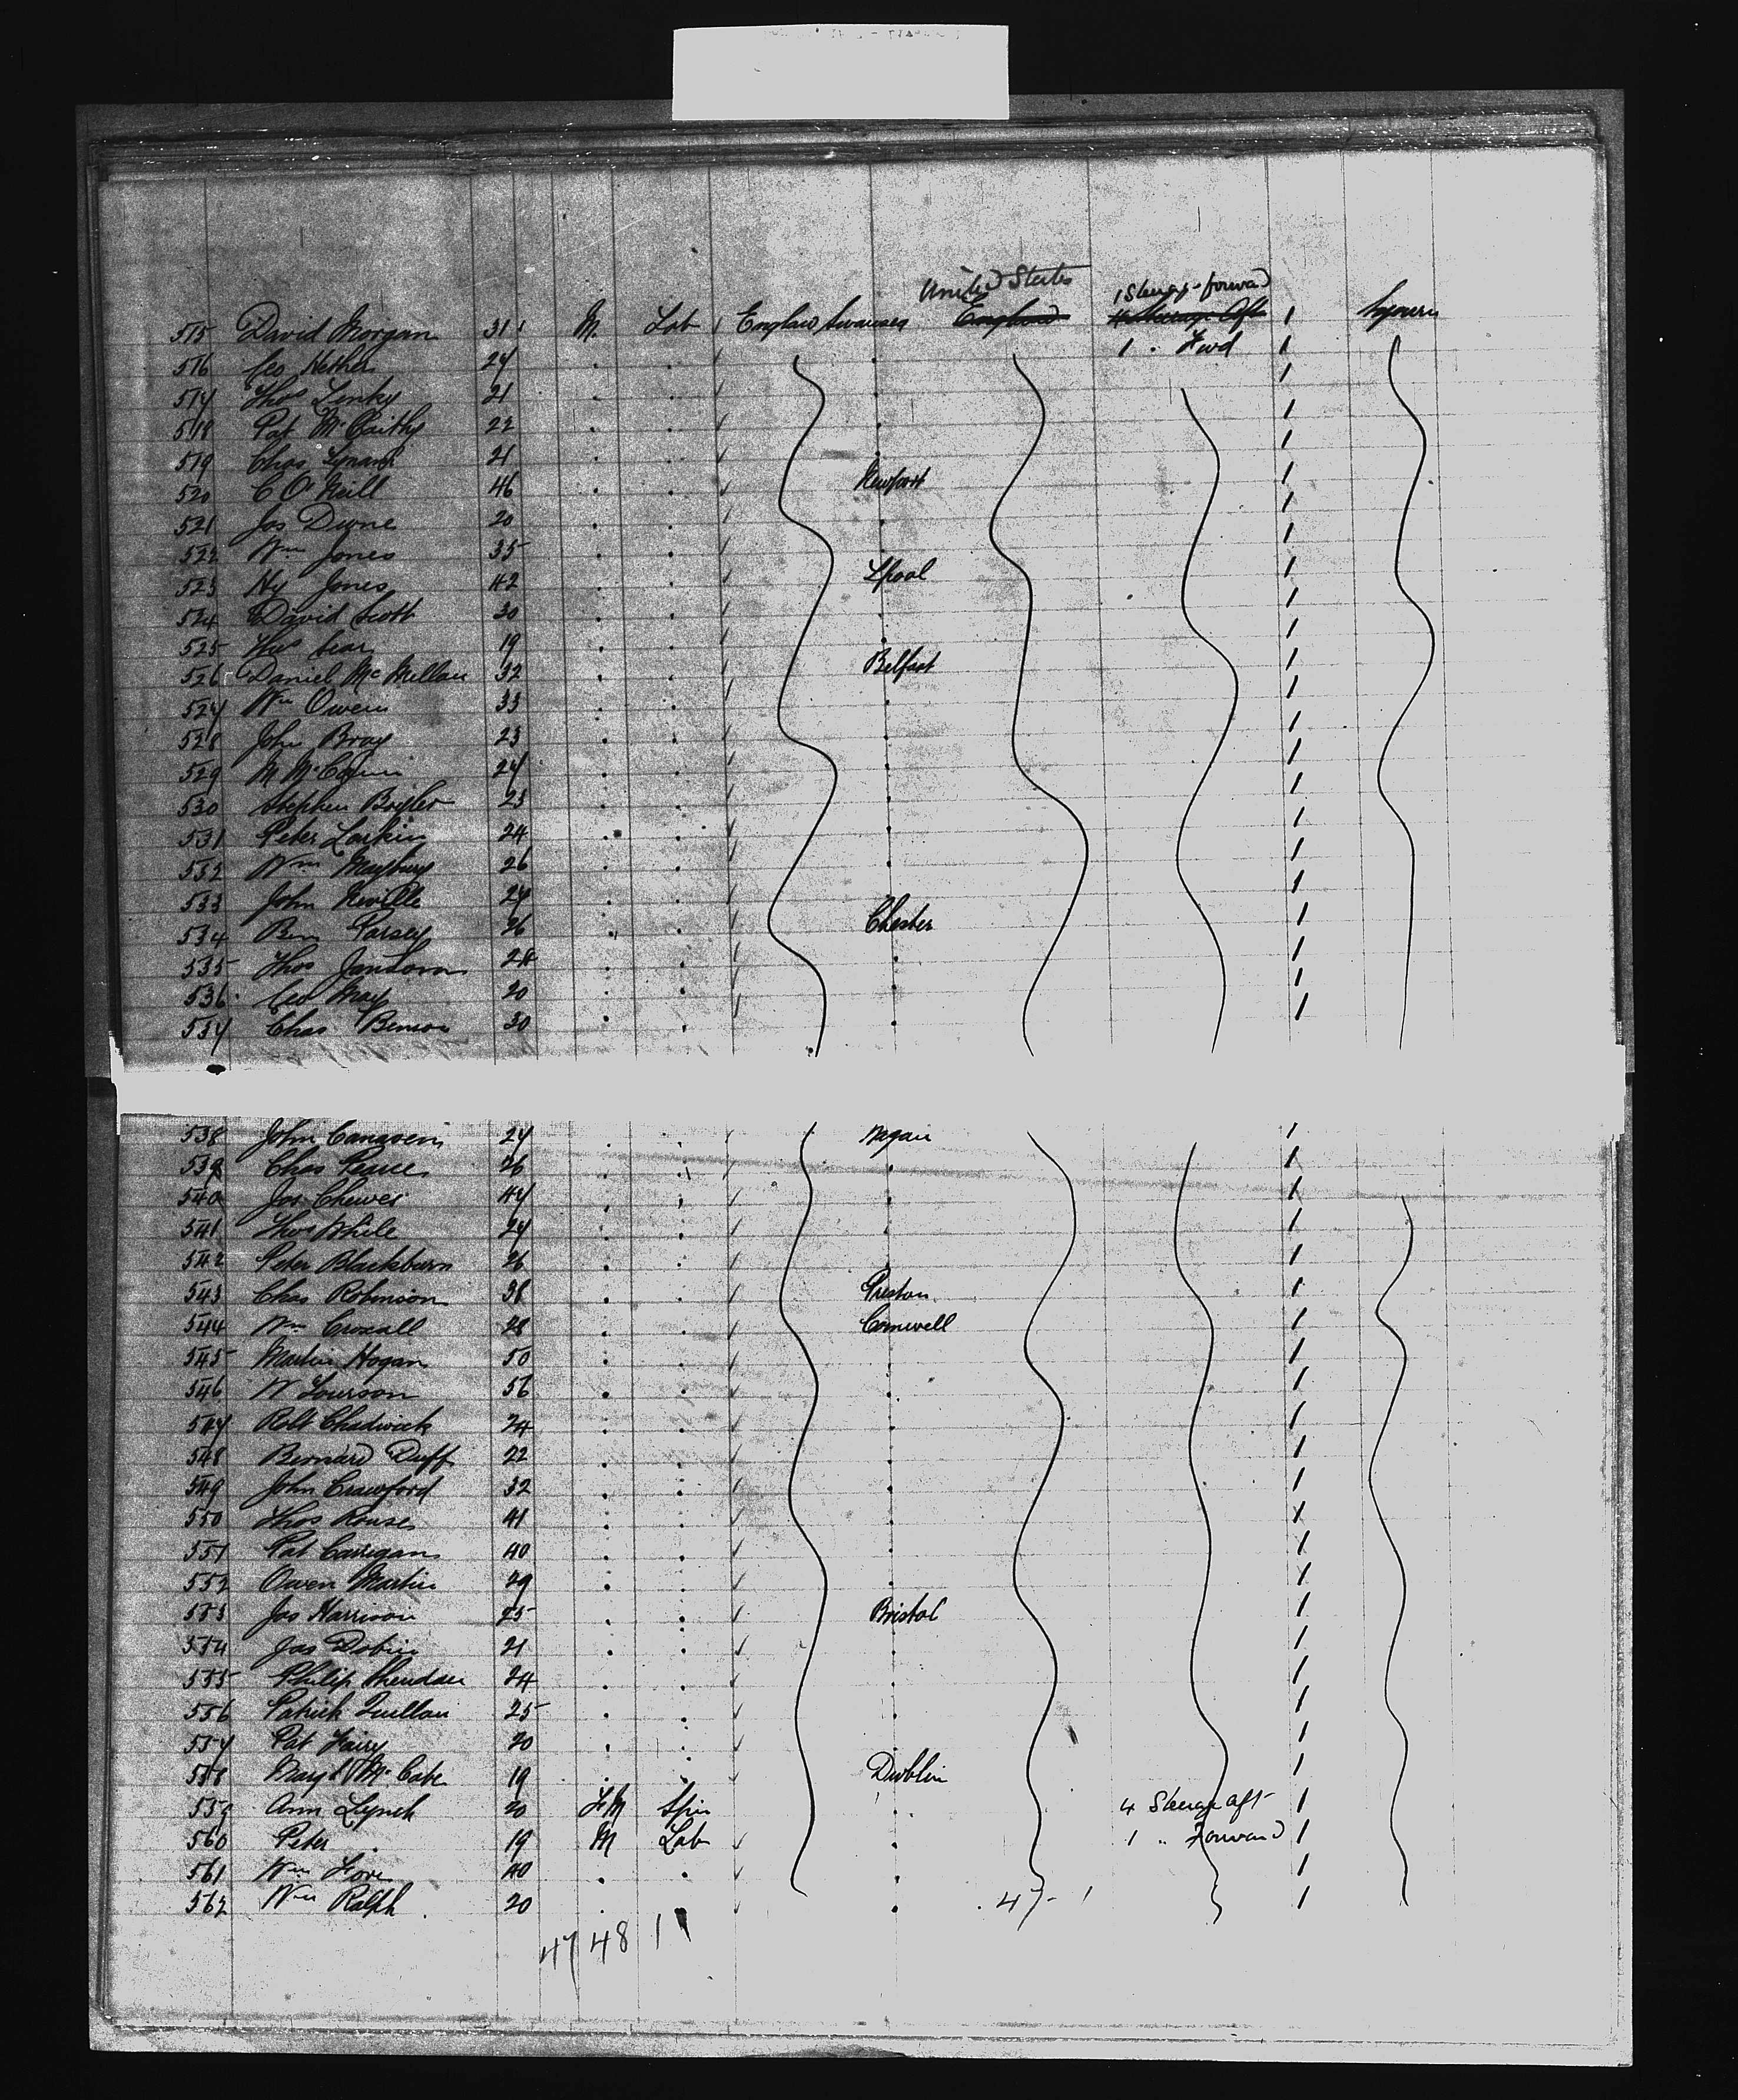 United States
1 Steerage forward
515 David Morgan 31 M. Lab England Swansea England 4 Steerage Aft 1 Sojourn
516 Geo Hether 27 . . . 1 . Fwd 1
517 Thos 21 . . . 1
518 Pat McCarthy 22 . . . 1
519 Chas 21 . . . 1
520 C O'Neill 46 . . Newport 1
521 Jas Dune 20 . . . 1
522 Wm Jones 35 . . . 1
523 Hy Jones 42 . . Lpool 1
524 David Scott 30 . . . 1
525 Thos 19 . . . 1
526 Daniel McMillan 32 . . Belfast 1
527 Wm Owens 33 . . . 1
528 John Bray 23 . . . 1
529 M 27 . . . 1
530 Stephen 23 . . . 1
531 Peter Larkin 24 . . . 1
532 Wm Maybury 26 . . . 1
533 John Neville 27 . . . 1
534 Ben Parsey 26 . . Chester 1
535 Thos 28 . . . 1
536 Geo May 20 . . . 1
537 Chas Benson 30 . . . 1
538 John 27 . . 1
539 Chas Pearce 26 . . . 1
540 Jas Chewes 47 . . . 1
541 Thos White 27 . . . 1
542 Peter Blackburn 26 . . . 1
543 Chas Robinson 38 . . Preston 1
544 Wm Croxall 28 . . Cornwell 1
545 Martin Hogan 50 . . . 1
546 W Lowrson 56 . . . 1
547 Robt Chadwick 24 . . . 1
548 Bernard Duff 22 . . . 1
549 John Crawford 32 . . . 1
550 Thos Rouse 41 . . . 1
551 Pat Carrigan 40 . . . 1
552 Owen Martin 29 . . . 1
553 Jas Harrison 25 . . Bristol 1
554 Jas Dobin 21 . . . 1
555 Philip Sheridan 24 . . . 1
556 Patrick Quillan 25 . . . 1
557 Pat 20 . . . 1
558 McCabe 19 . . Dublin 1
559 Ann Lynch 20 FM Spin . 4 Steerage aft 1
560 Peter . 19 M Lab . 1 .. Forward 1
561 Wm 40 . . . 1
562 Wm Ralph 20 . . . 47 - 1 1
47 48 1